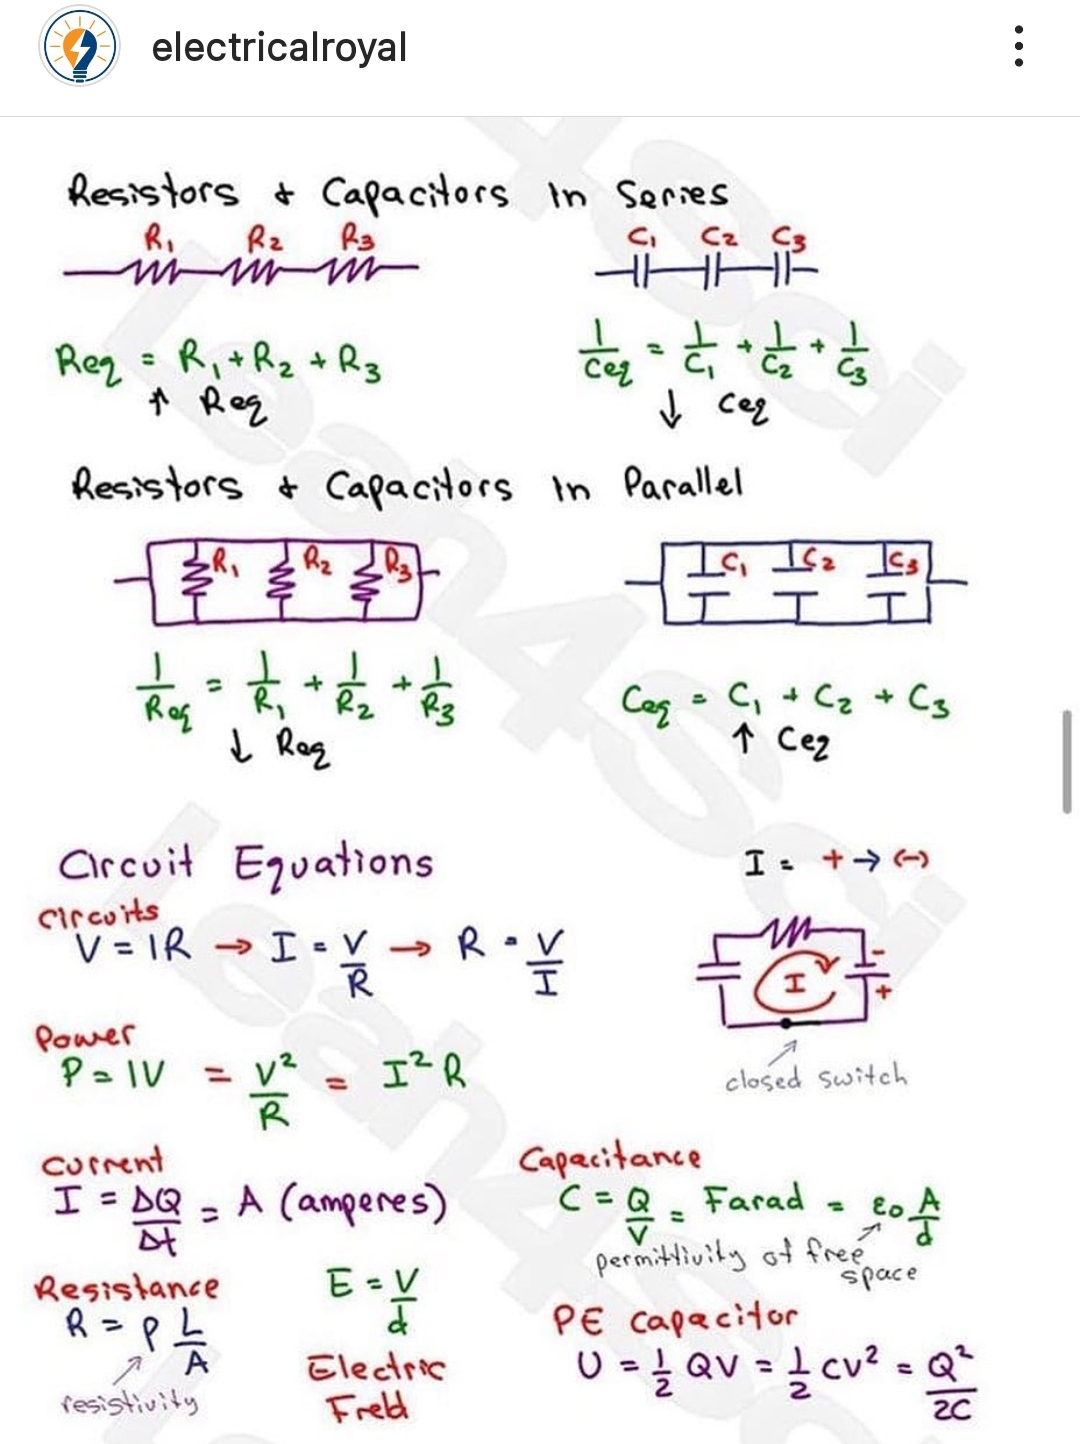 electricalroyal
Resistors & Capacitors In Series
R₁ R₂ R₃
C₁ C₂ C₃
Req = R₁ + R₂ + R₃
↑ Req
1/Ceq = 1/C₁ + 1/C₂ + 1/C₃
↓ Ceq
Resistors & Capacitors In Parallel
R₁ R₂ R₃
C₁ C₂ C₃
1/Req = 1/R₁ + 1/R₂ + 1/R₃
↓ Req
Ceq = C₁ + C₂ + C₃
↑ Ceq
Circuit Equations
I = + → (-)
Circuits
V = IR → I = V/R → R = V/I
- I +
closed switch
Power
P = IV = V²/R = I²R
Current
I = ΔQ/Δt = A (amperes)
Capacitance
C = Q/V = Farad = ε₀ A/d
permittivity of free space
Resistance
R = ρ L/A
resistivity
E = V/d
Electric
Field
PE capacitor
U = 1/2 QV = 1/2 CV² = Q²/2C
Leah4Sci
Leah4Sci
Leah4Sci